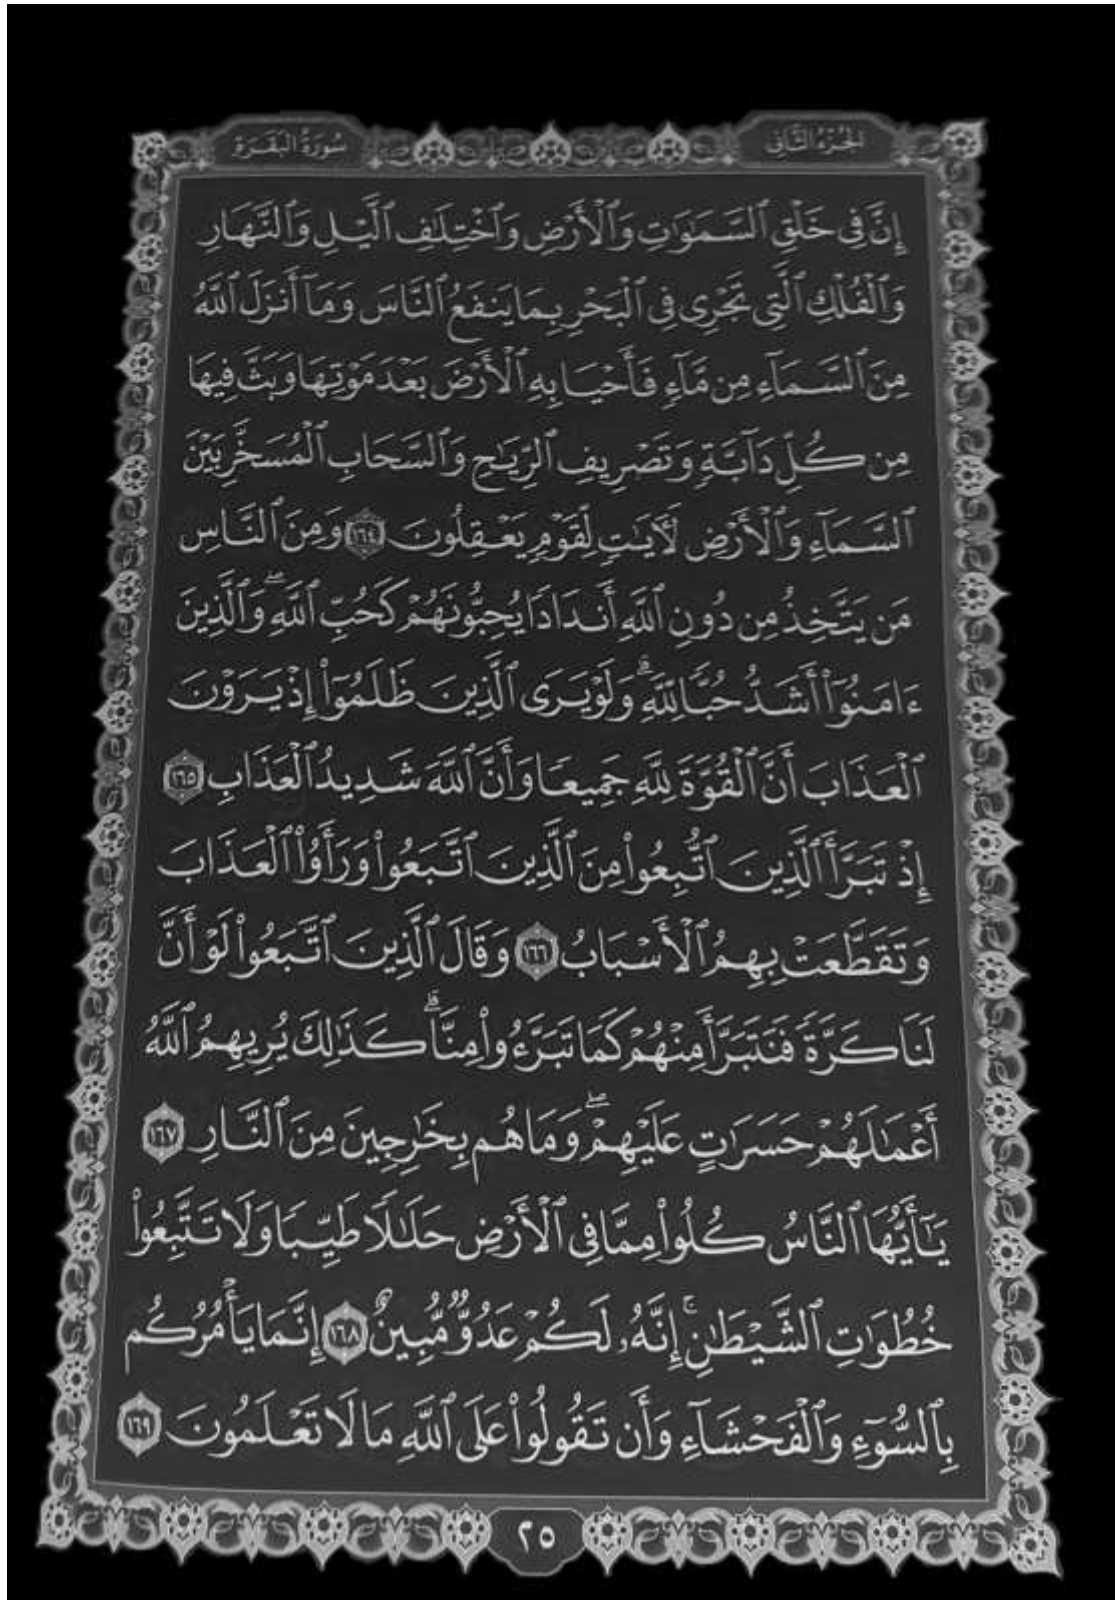 الجزء الثاني
سورة البقرة
إِنَّ فِى خَلْقِ ٱلسَّمَٰوَٰتِ وَٱلْأَرْضِ وَٱخْتِلَٰفِ ٱلَّيْلِ وَٱلنَّهَارِ
وَٱلْفُلْكِ ٱلَّتِى تَجْرِى فِى ٱلْبَحْرِ بِمَا يَنفَعُ ٱلنَّاسَ وَمَآ أَنزَلَ ٱللَّهُ
مِنَ ٱلسَّمَآءِ مِن مَّآءٍ فَأَحْيَا بِهِ ٱلْأَرْضَ بَعْدَ مَوْتِهَا وَبَثَّ فِيهَا
مِن كُلِّ دَآبَّةٍ وَتَصْرِيفِ ٱلرِّيَٰحِ وَٱلسَّحَابِ ٱلْمُسَخَّرِ بَيْنَ
ٱلسَّمَآءِ وَٱلْأَرْضِ لَءَايَٰتٍ لِّقَوْمٍ يَعْقِلُونَ ١٦٤ وَمِنَ ٱلنَّاسِ
مَن يَتَّخِذُ مِن دُونِ ٱللَّهِ أَندَادًا يُحِبُّونَهُمْ كَحُبِّ ٱللَّهِ ۖ وَٱلَّذِينَ
ءَامَنُوٓا۟ أَشَدُّ حُبًّا لِّلَّهِ ۗ وَلَوْ يَرَى ٱلَّذِينَ ظَلَمُوٓا۟ إِذْ يَرَوْنَ
ٱلْعَذَابَ أَنَّ ٱلْقُوَّةَ لِلَّهِ جَمِيعًا وَأَنَّ ٱللَّهَ شَدِيدُ ٱلْعَذَابِ ١٦٥
إِذْ تَبَرَّأَ ٱلَّذِينَ ٱتُّبِعُوا۟ مِنَ ٱلَّذِينَ ٱتَّبَعُوا۟ وَرَأَوُا۟ ٱلْعَذَابَ
وَتَقَطَّعَتْ بِهِمُ ٱلْأَسْبَابُ ١٦٦ وَقَالَ ٱلَّذِينَ ٱتَّبَعُوا۟ لَوْ أَنَّ
لَنَا كَرَّةً فَنَتَبَرَّأَ مِنْهُمْ كَمَا تَبَرَّءُوا۟ مِنَّا ۗ كَذَٰلِكَ يُرِيهِمُ ٱللَّهُ
أَعْمَٰلَهُمْ حَسَرَٰتٍ عَلَيْهِمْ ۖ وَمَا هُم بِخَٰرِجِينَ مِنَ ٱلنَّارِ ١٦٧
يَٰٓأَيُّهَا ٱلنَّاسُ كُلُوا۟ مِمَّا فِى ٱلْأَرْضِ حَلَٰلًا طَيِّبًا وَلَا تَتَّبِعُوا۟
خُطُوَٰتِ ٱلشَّيْطَٰنِ ۚ إِنَّهُۥ لَكُمْ عَدُوٌّ مُّبِينٌ ١٦٨ إِنَّمَا يَأْمُرُكُم
بِٱلسُّوٓءِ وَٱلْفَحْشَآءِ وَأَن تَقُولُوا۟ عَلَى ٱللَّهِ مَا لَا تَعْلَمُونَ ١٦٩
٢٥